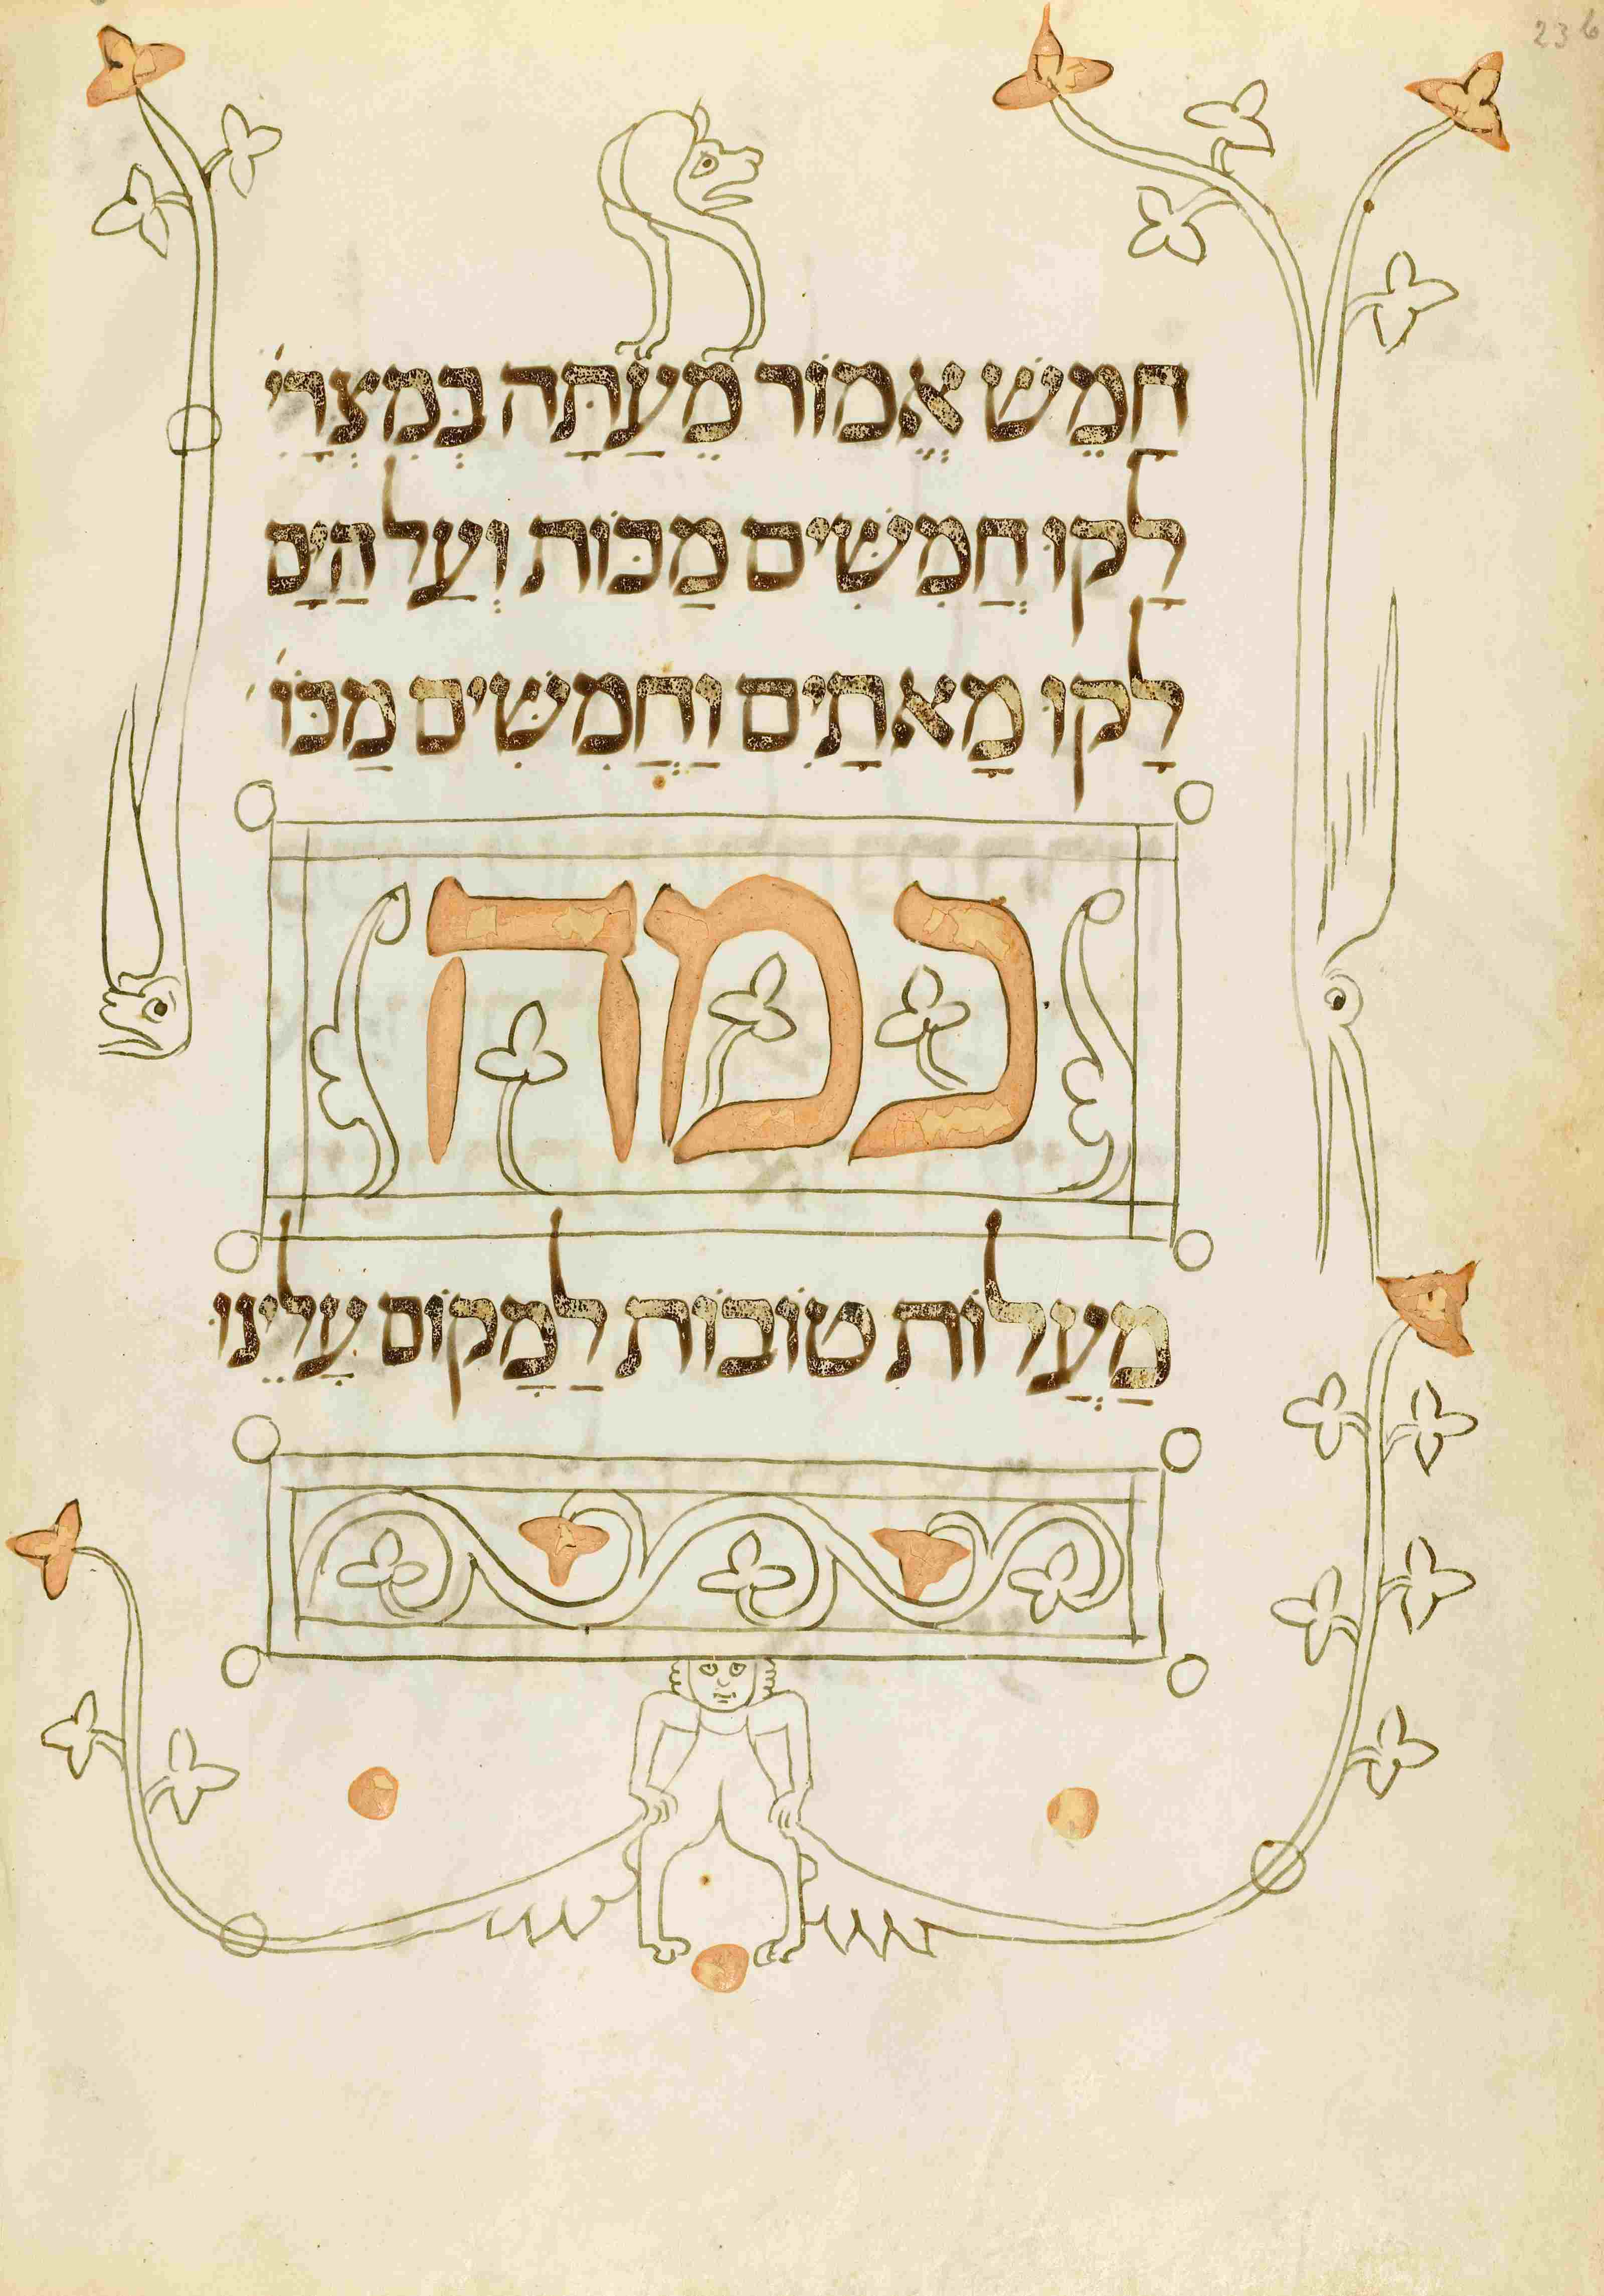 236
חָמֵשׁ אֱמוֹר מֵעַתָּה בְּמִצְרַיִ׳
לָקוּ חֲמִשִּׁים מַכּוֹת וְעַל הַיָּם
לָקוּ מָאתַיִם וַחֲמִשִּׁים מַכּוֹ׳
כמה
מַעֲלוֹת טוֹבוֹת לַמָּקוֹם עָלֵינוּ׃